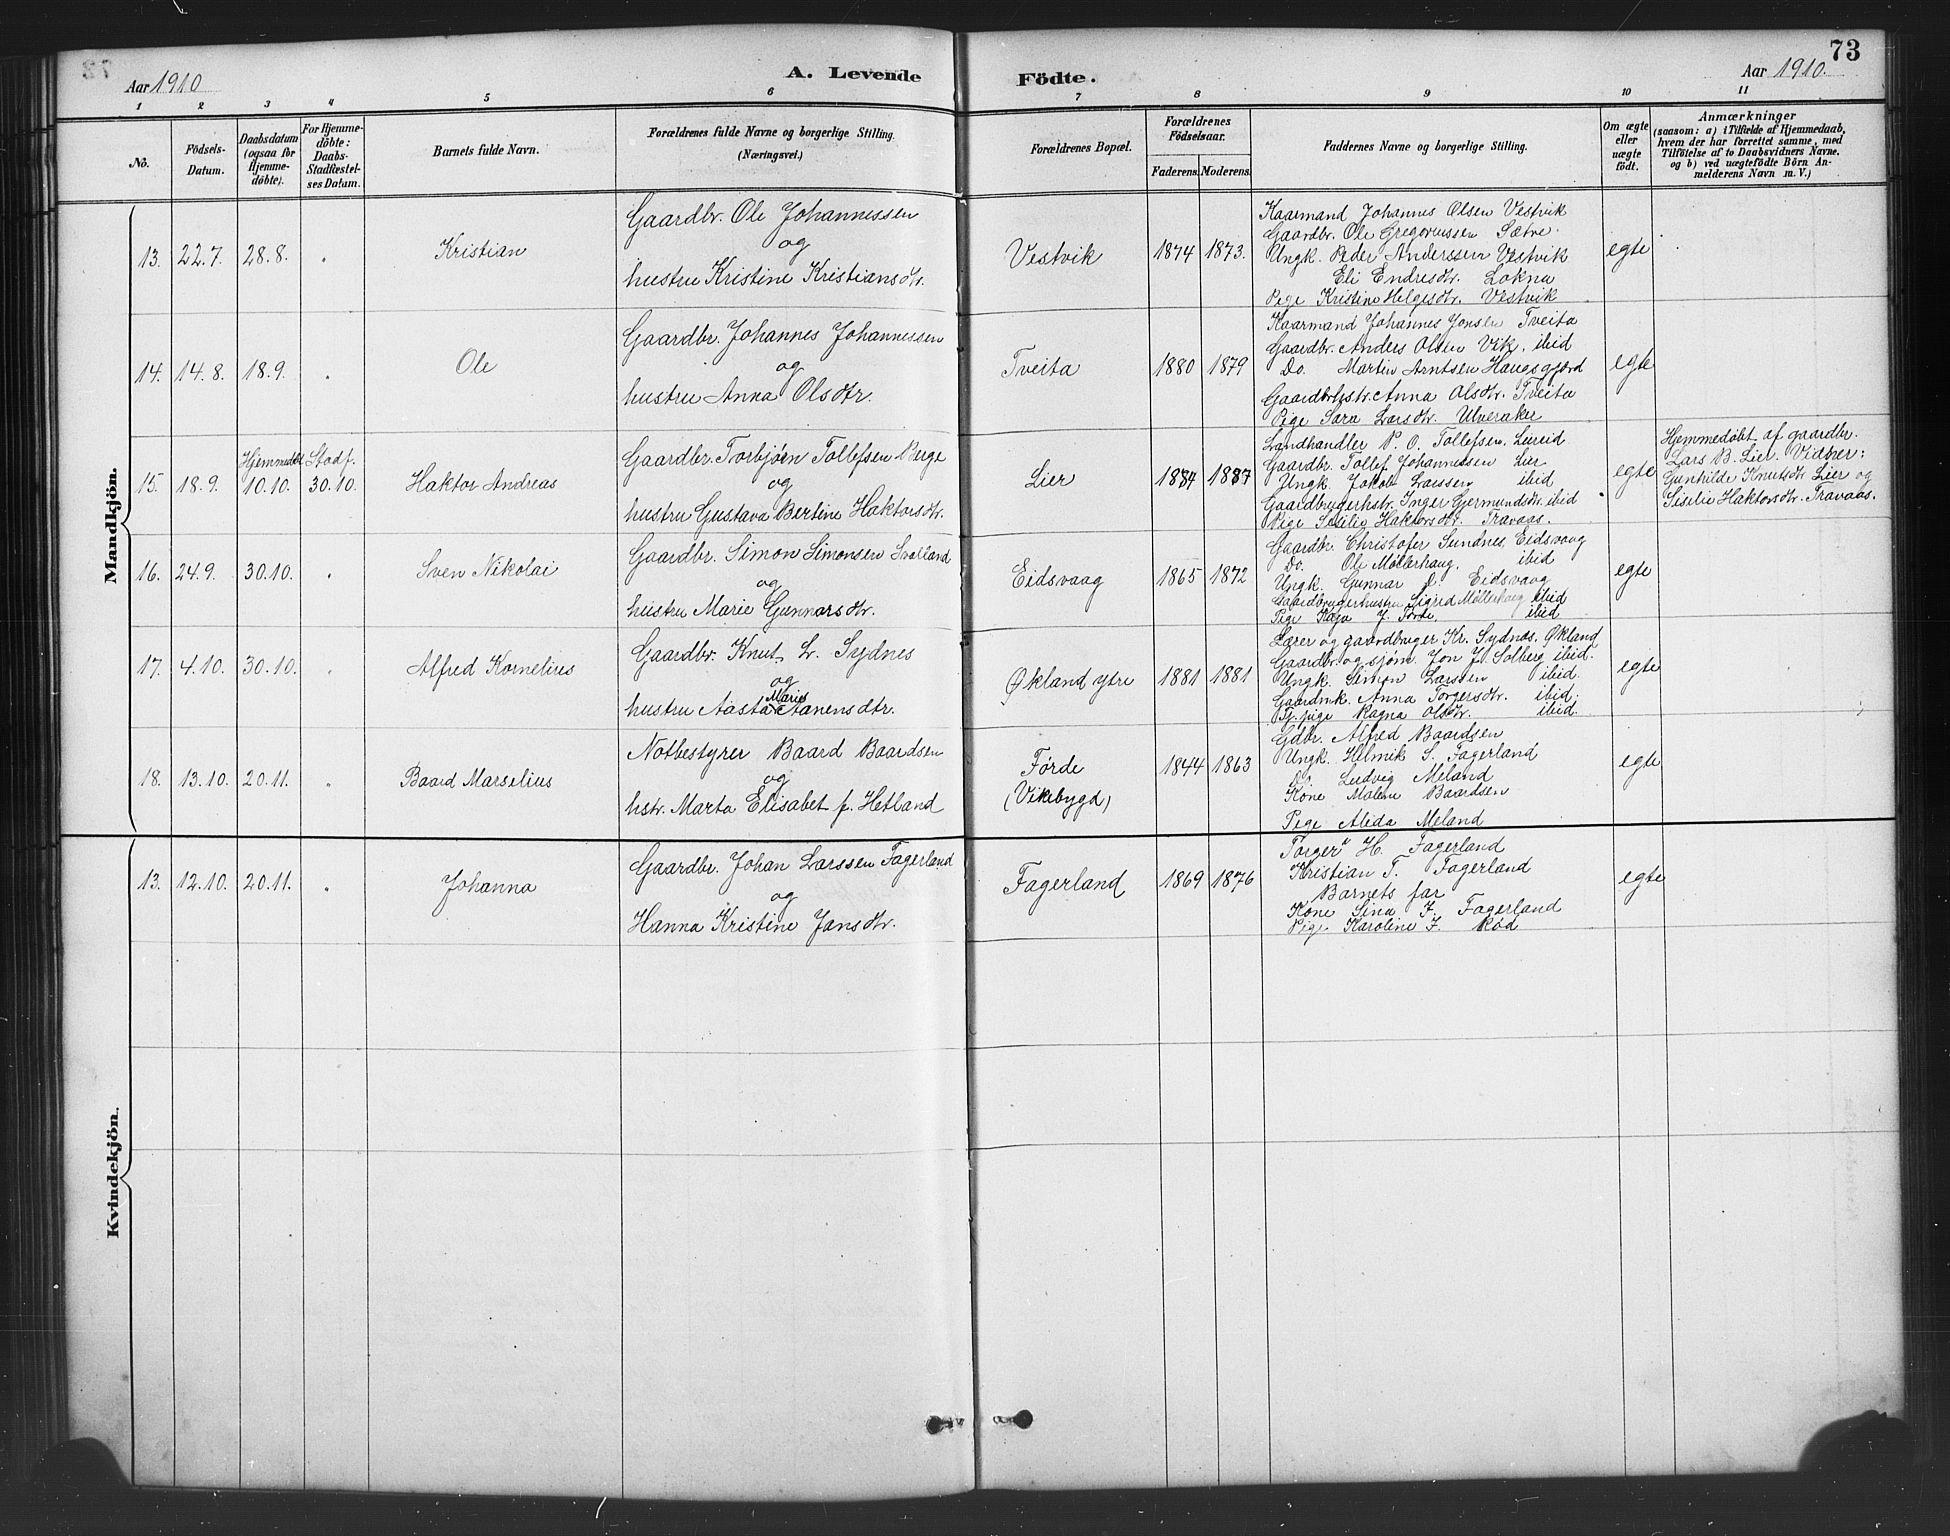 73
Aar 1910
A. Levende Födte.
Aar 1910.
1 2 3 4 5 6 7 8 9 10 11
No.
Födsels-Datum.
Daabsdatum (ogsaa for Hjemme-döbte).
For Hjemme-döbte: Daabs-Stadfæstel-ses Datum.
Barnets fulde Navn.
Forældrenes fulde Navne og borgerlige Stilling.
(Næringsvei.)
Forældrenes Bopæl.
Forældrenes Födselsaar.
Faderens. Moderens.
Faddernes Navne og borgerlige Stilling.
Om ægte eller uægte födt.
Anmærkninger
(saasom: a) i Tilfælde af Hjemmedaab,
hvem der har forrettet samme, med
Tilföielse af to Daabsvidners Navne,
og b) ved uægtefödte Börn An-
melderens Navn m. V.)
Mandkjön.
13. 22.7. 28.8. " Kristian
Gaardbr. Ole Johannessen
og
hustru Kristine Kristiansdtr.
Vestvik 1874 1873.
Kaarmand Johannes Olsen Vestvik
Gaardbr. Ole Gregoriussen Sætre.
Ungk. Peder Anderssen Vestvik
Eli Endresdtr. Lokna
Pige Kristine Helgesdtr. Vestvik
egte
14. 14.8. 18.9. " Ole
Gaardbr. Johannes Johannessen
og
hustru Anna Olsdtr.
Tveita 1880 1879
Kaarmand Johannes Jonsen Tveita
Gaardbr. Anders Olsen Vik. ibid
Do. Martin Arntsen Haugsgjerd
Gaardbrhstr. Anna Olsdtr. Tveita
Pige Sara Larsdtr. Ulveraker
egte
15. 18.9. Hjemmedøbt 10.10. Stadf. 30.10. Haktor Andreas
Gaardbr. Torbjørn Tollefsen Berge
og
hustru Gustava Bertine Haktorsdtr.
Lier 1884 1887
Landhandler P. O. Tollefsen, Lureid
Gaardbr. Tollef Johannessen Lier
Ungk. Jakob Larssen ibid
Gaardbrugerhstr. Inger Gjermundsdtr. ibid
Pige Sesilie Haktorsdtr. Travaas.
egte
Hjemmedøbt af gaardbr.
Lars B. Lier. Vidner:
Gunhilde Knutsdtr Lier og
Sesilie Haktorsdtr. Travaas.
16. 24.9. 30.10. " Sven Nikolai
Gaardbr. Simon Simonsen Svolland
og
hustru Marie Gunnarsdtr.
Eidsvaag 1865 1872
Gaardbr. Christofer Sundnes, Eidsvaag
Do. Ole Møllerhaug, ibid
Ungk. Gunnar D. Eidsvaag
Gaardbrugerhustru Sigrid Møllerhaug ibid
Pige Kaja J. Førde ibid
egte
17. 4.10. 30.10. " Alfred Kornelius
Gaardbr. Knut L. Sydnes
og
hustru Aasta Marie Aanensdtr.
Økland ytre 1881 1881
Lærer og gaardbruger Kr. Sydnes, Økland
Gaardbr. og sjøm. Jon J. Solberg ibid.
Ungk. Simon Larssen ibid.
Gaardmk. Anna Torgersdtr. ibid.
Tj. pige Ragna Olsdtr. ibid.
egte
18. 13.10. 20.11. " Baard Marselius
Notbestyrer Baard Baardsen
og
hstr. Marta Elisabet f. Hetland
Førde
(Vikebygd) 1844 1863
Gdbr. Alfred Baardsen
Ungk. Helmik S. Fagerland
Do. Ludvig Meland
Kone Malene Baardsen
Pige Alida Meland
egte
Kvindekjön.
13. 12.10. 20.11. " Johanna
Gaardbr. Johan Larssen Fagerland
og
Hanna Kristine Jansdtr.
Fagerland 1869 1876
Torger H. Fagerland
Kristian T. Fagerland
Barnets far
Kone Sina F. Fagerland
Pige Karoline J. Rød
egte